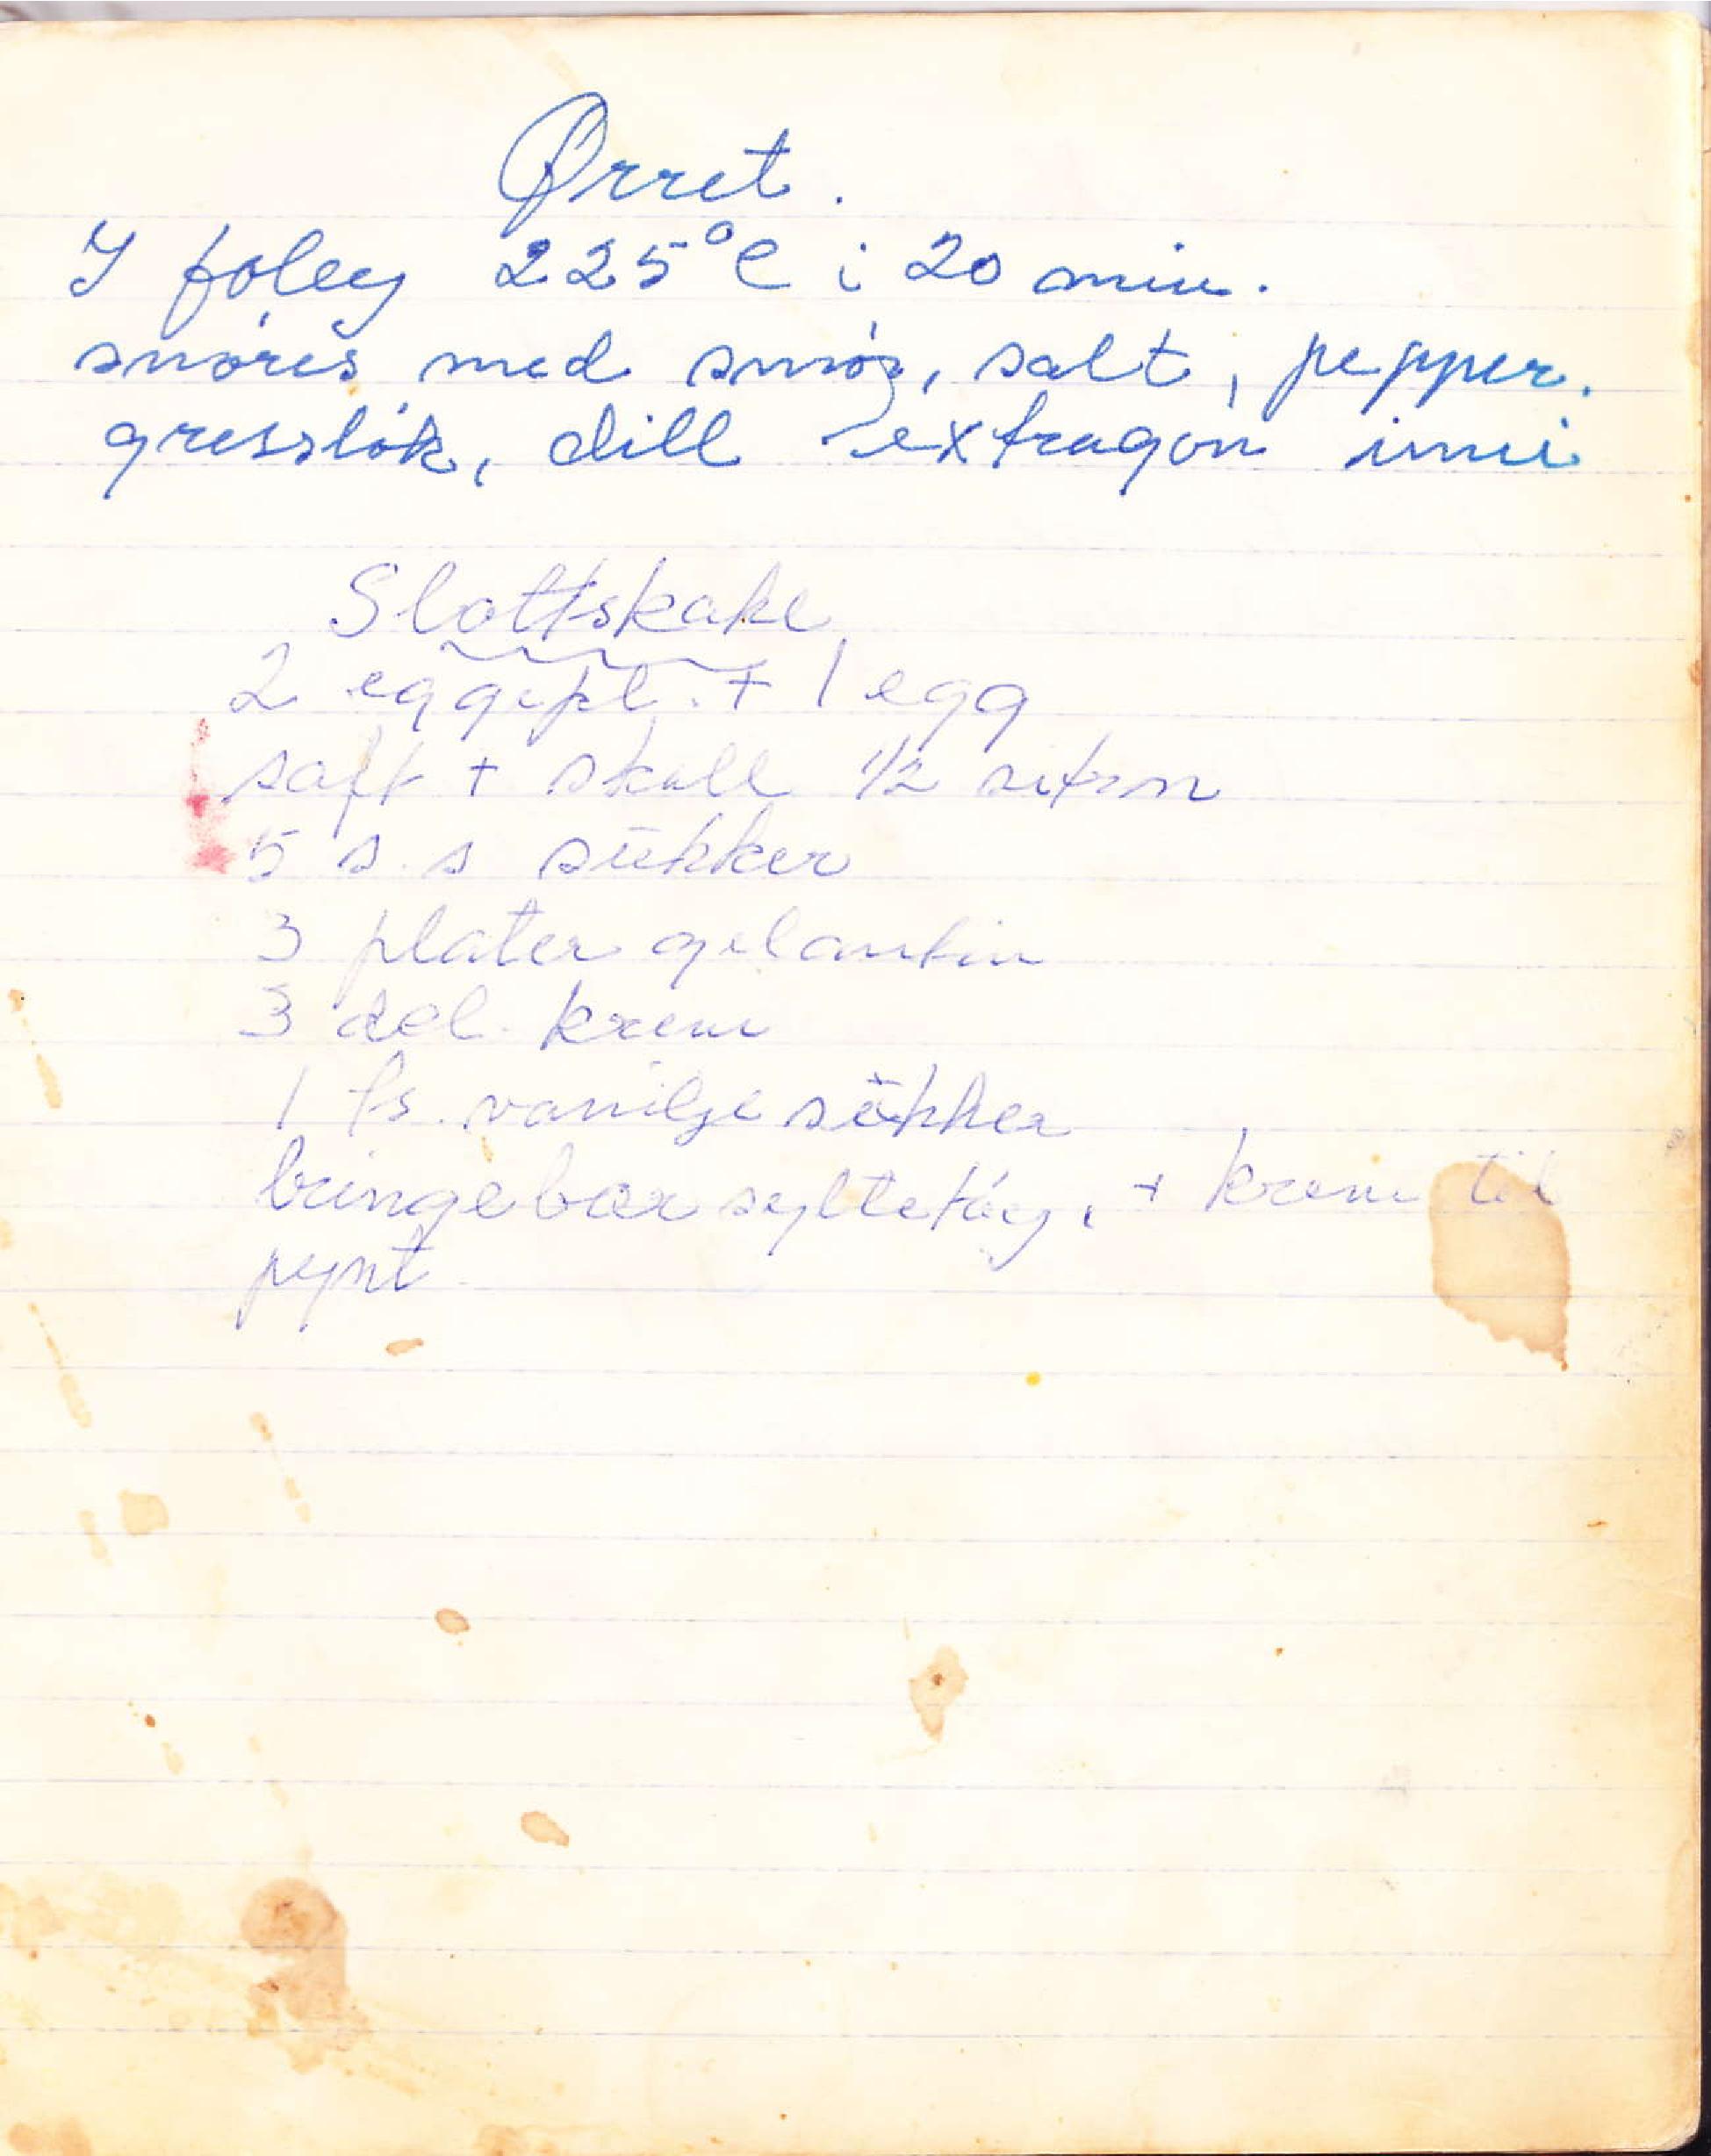 Ørret.
I foley 225°C i 20 min.
smøres med smør, salt, pepper.
gressløk, dill extragon inni
Slottskake
2 eggepl. + 1 egg
saft + skall 1/2 sitron
5 s.s sukker
3 plater gelantin
3 del. krem
1 ts. vanilje sukker
bringebær syltetøy, + krem til
pynt